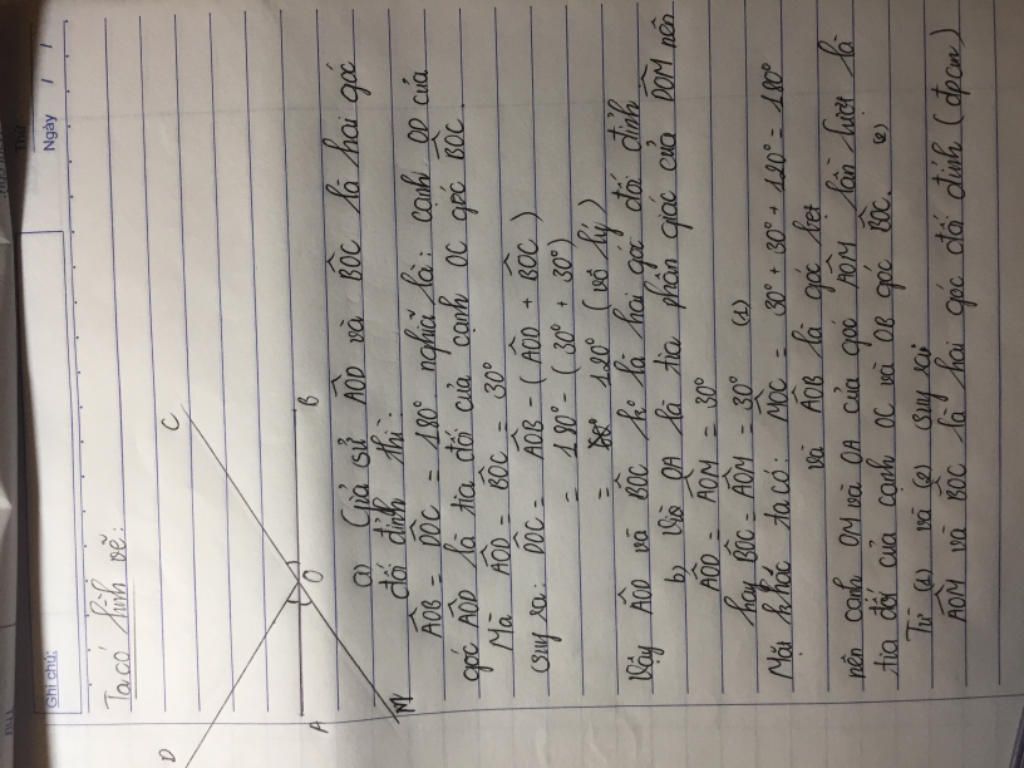 Thứ
Ngày / /
Ghi chú:
Ta có hình vẽ:
D
C
A
O
B
M
a) Giả sử AÔD và BÔC là hai góc
đối đỉnh thì:
AÔB = DÔC = 180° nghĩa là: cạnh OD của
góc AÔD là tia đối của cạnh OC góc BÔC
Mà AÔD = BÔC = 30°
suy ra: DÔC = AÔB - (AÔD + BÔC)
= 180° - (30° + 30°)
= 120° (vô lý)
Vậy AÔD và BÔC k° là hai góc đối đỉnh
b) Vì OA là tia phân giác của DÔM nên
AÔD = AÔM = 30°
hay BÔC = AÔM = 30° (1)
Mặt khác ta có: MÔC = 30° + 30° + 120° = 180°
và AÔB là góc bẹt
nên cạnh OM và OA của góc AÔM lần lượt là
tia đối của cạnh OC và OB góc BÔC. (2)
Từ (1) và (2) suy ra:
AÔM và BÔC là hai góc đối đỉnh (đpcm)